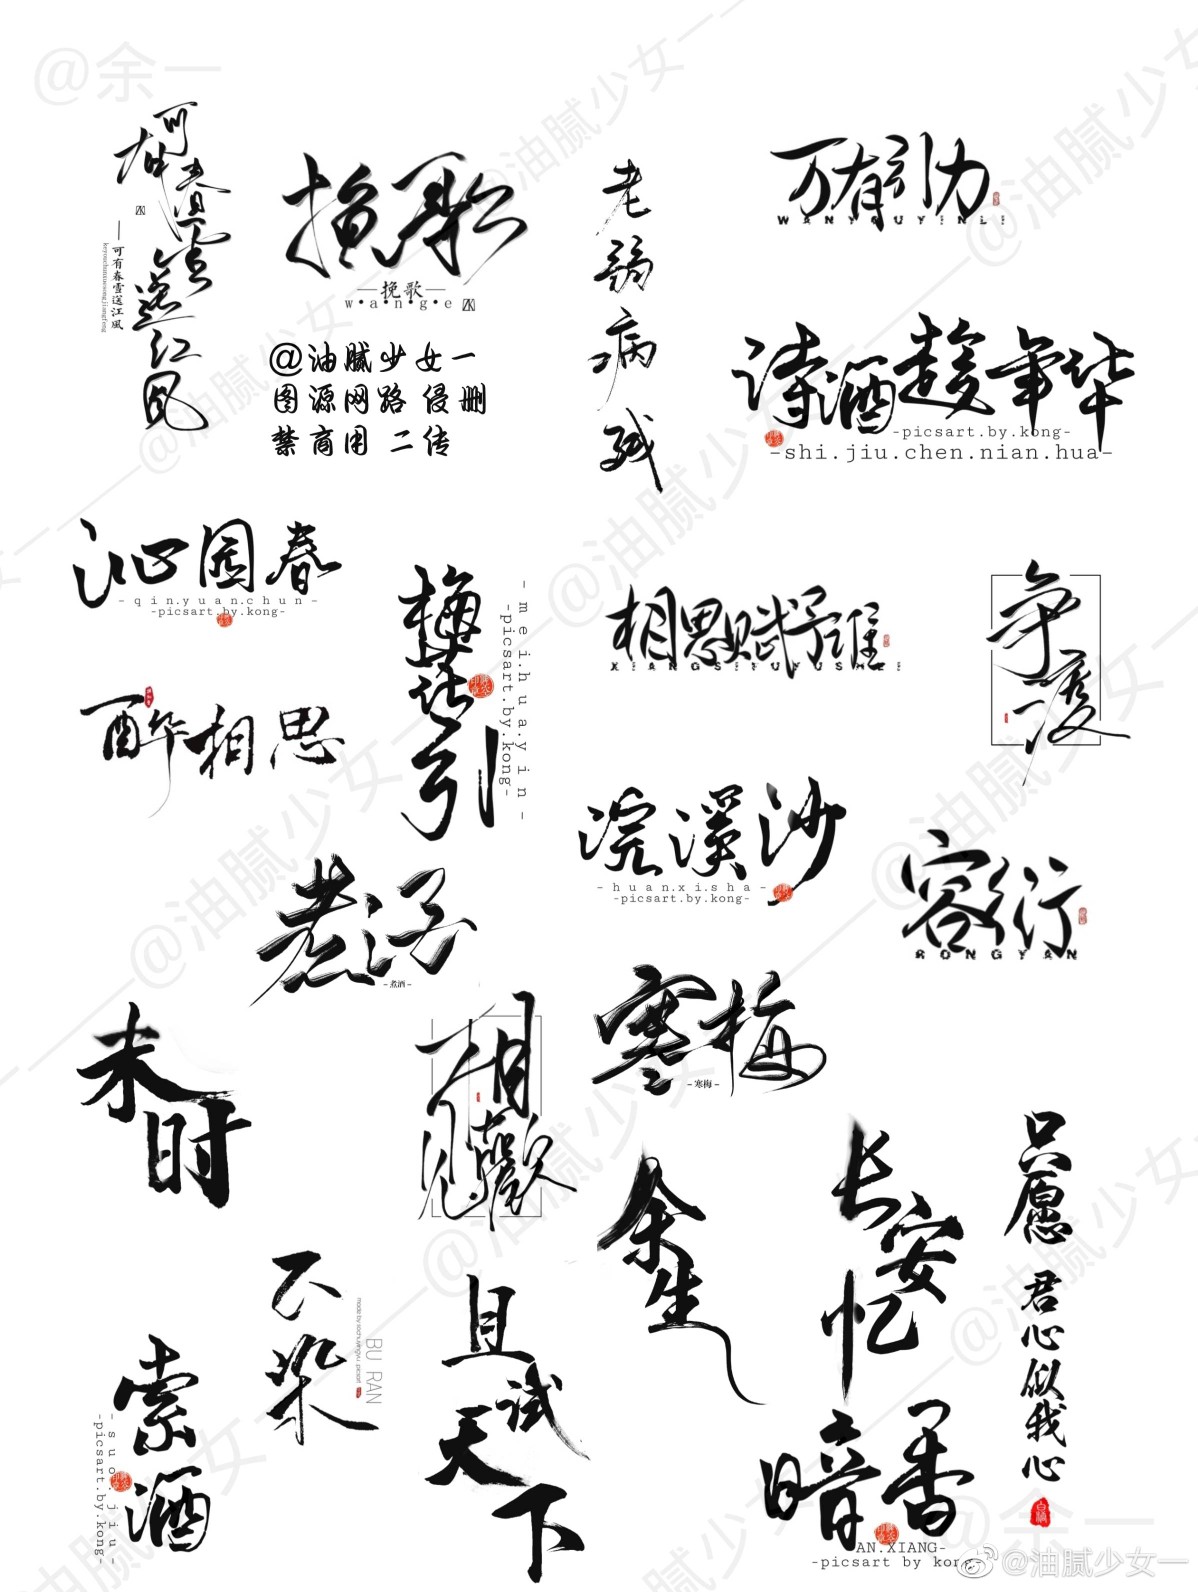 @余一
可有春雪送江风
——可有春雪送江風
keyouchunxuesongjiangfeng
挽歌
—挽歌—
w•a•n•g•e
@油腻少女一
图源网路 侵删
禁商用 二传
老弱病残
万有引力
WANYOUYINLI
诗酒趁年华
-picsart.by.kong-
-shi.jiu.chen.nian.hua-
沁园春
-qin.yuan.chun-
-picsart.by.kong-
梅花引
-mei.hua.yin-
-picsart.by.kong-
相思赋予谁
XIANGSIFUYUSHEI
争渡
醉相思
浣溪沙
-huan.xi.sha-
-picsart.by.kong-
容衍
RONGYAN
煮酒
-煮酒-
寒梅
-寒梅-
未时
相见欢
余生
长安忆
只愿君心似我心
不染
BU RAN
且试天下
索酒
-suo.jiu-
-picsart.by.kong-
暗香
-AN.XIANG-
-picsart by kong-
@余一
@油腻少女一